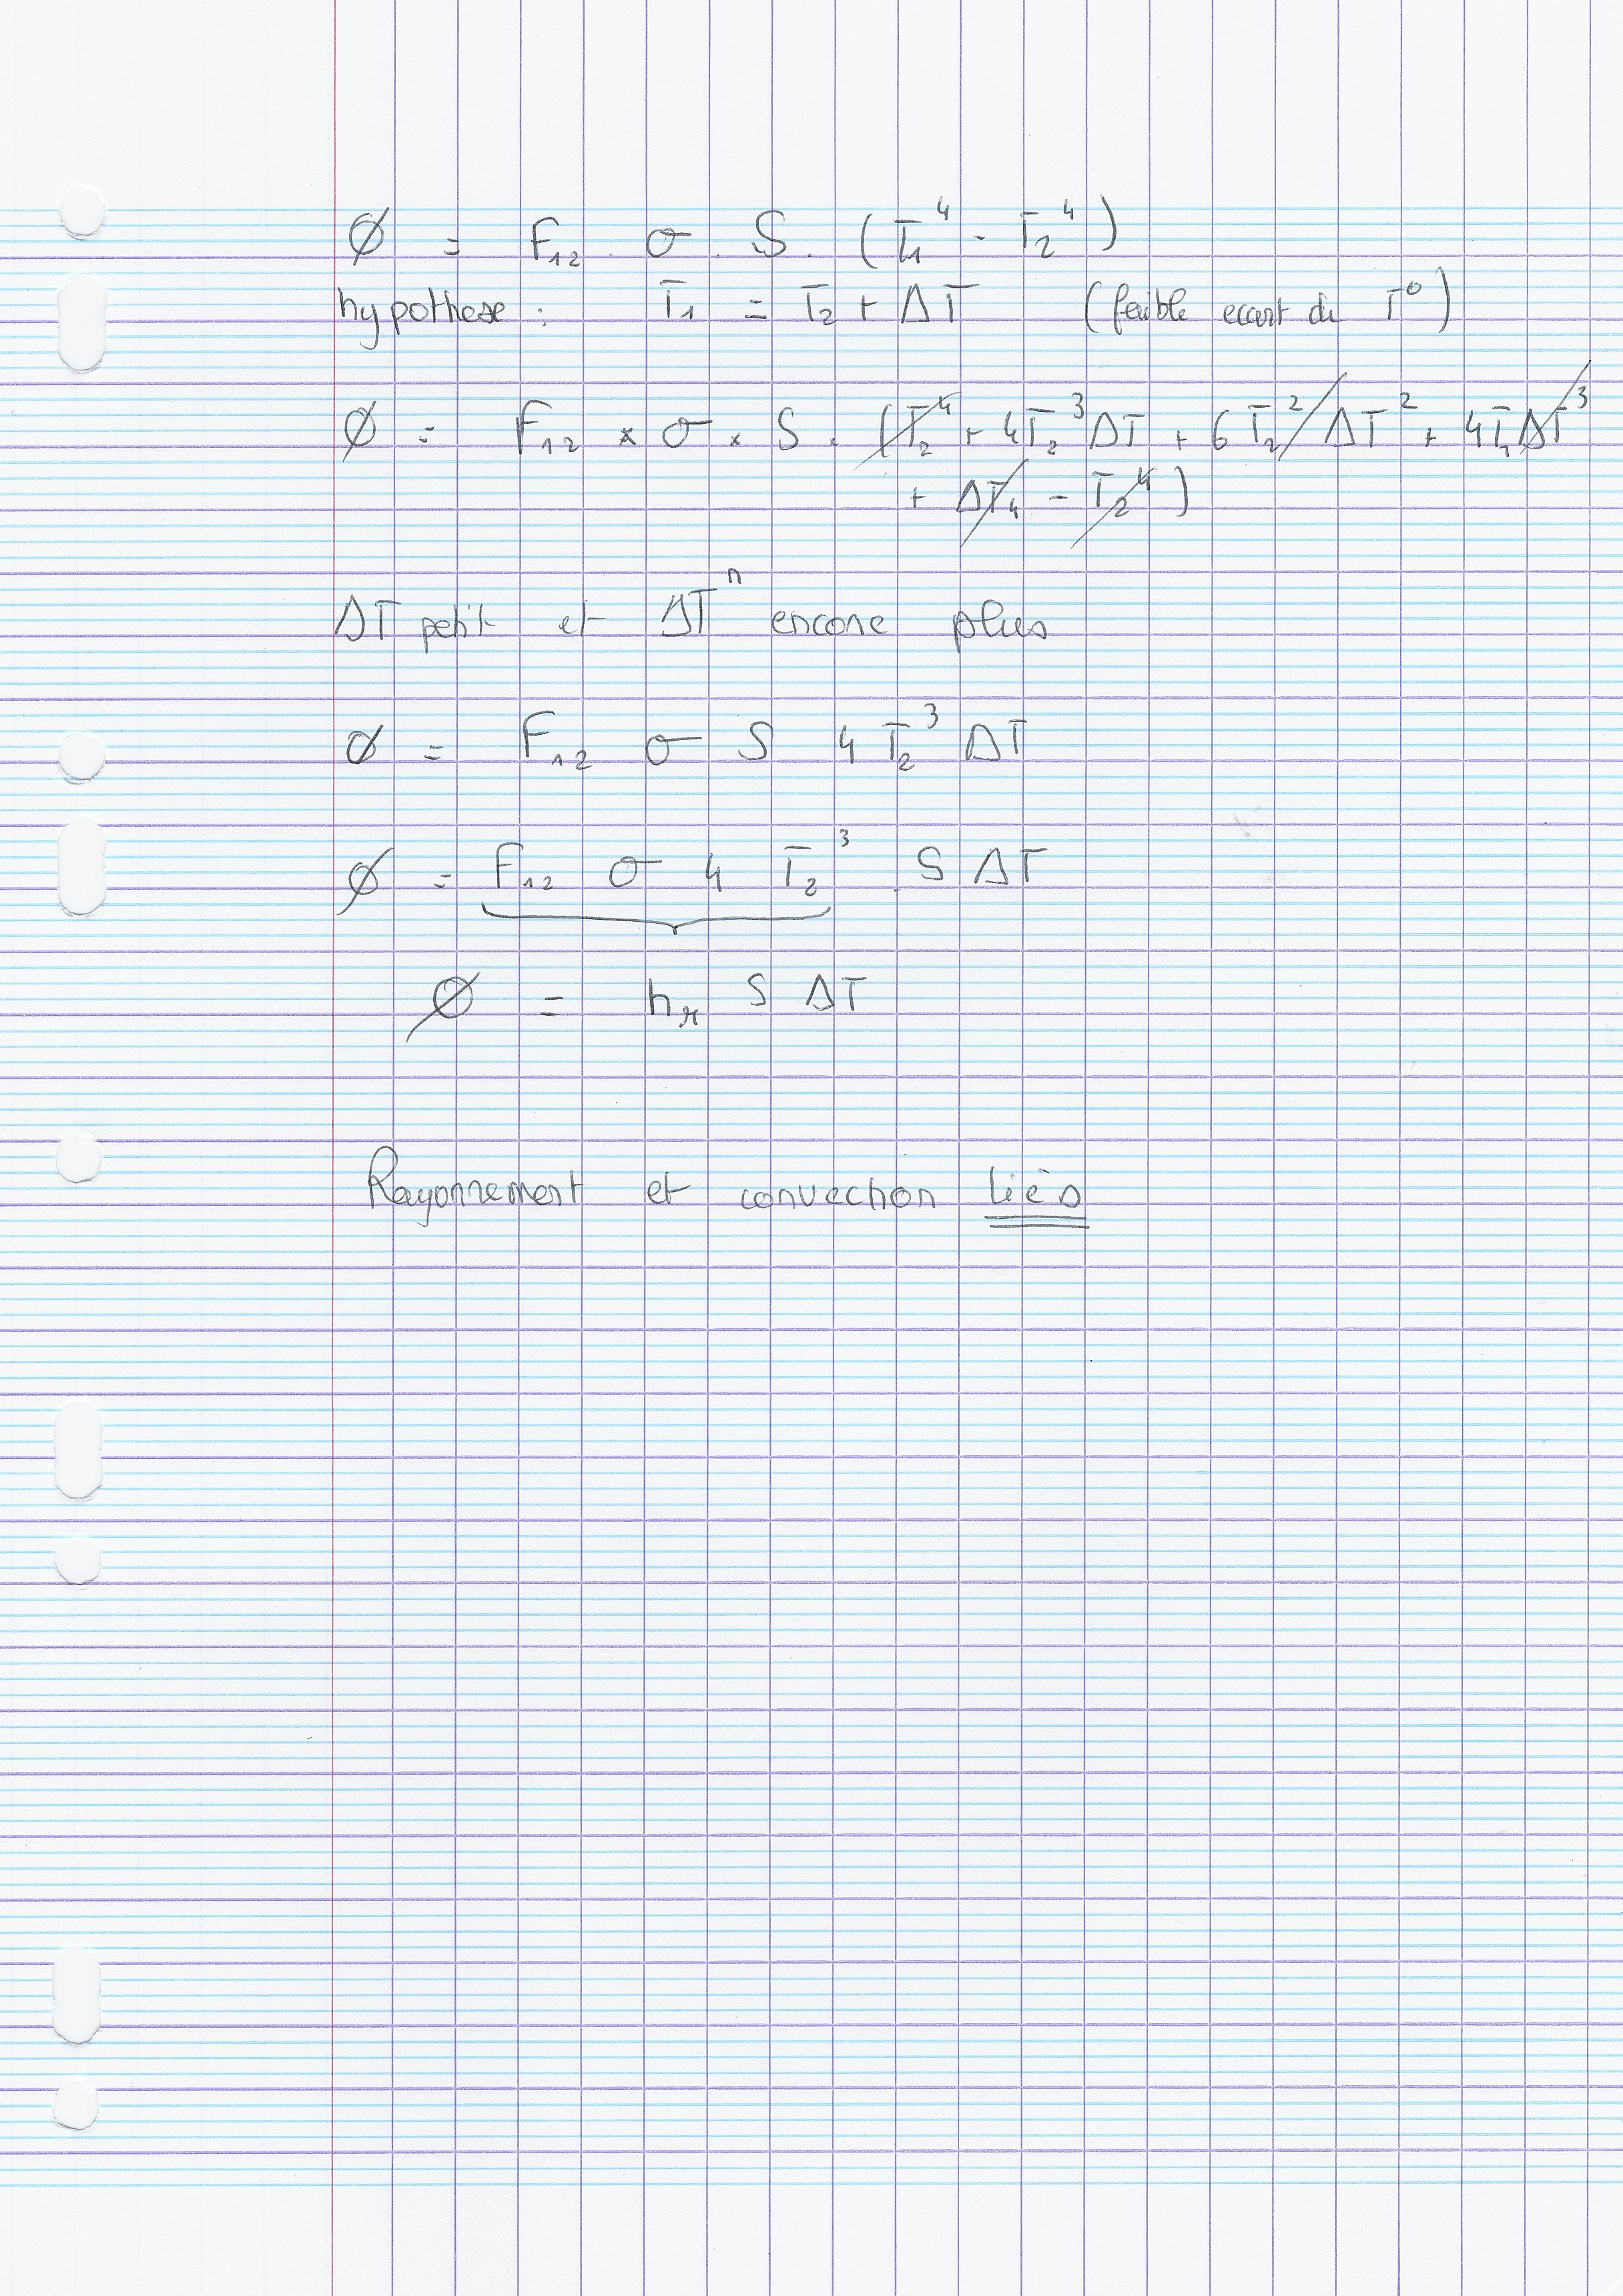 Ø = F₁₂ . σ . S . (T₁⁴ - T₂⁴)
hypothese : T₁ = T₂ + ΔT (faible ecart de T°)
Ø = F₁₂ × σ × S . (T₂⁴ + 4T₂³ΔT + 6T₂²ΔT² + 4T₂ΔT³
+ ΔT₄ - T₂⁴)
ΔT petit et ΔTⁿ encore plus
Ø = F₁₂ σ S 4 T₂³ ΔT
Ø = F₁₂ σ 4 T₂³ . S ΔT
Ø = hᵣ S ΔT
Rayonnement et convection liés